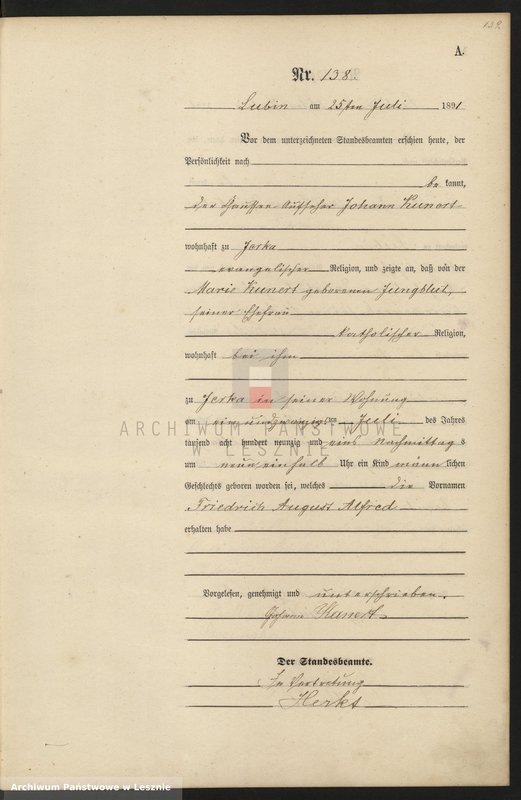 139.
A.
Nr. 138.
Lubin am 25ten Juli 1891
Vor dem unterzeichneten Standesbeamten erschien heute, der
Persönlichkeit nach
be kannt,
der Chaussee Aufseher Johann Kunert
wohnhaft zu Jerka
evangelischer Religion, und zeigte an, daß von der
Marie Kunert geborenen Jungblut,
seiner Ehefrau
katholischer Religion,
wohnhaft bei ihm
zu Jerka in seiner Wohnung
am ein und zwanzig ten Juli des Jahres
tausend acht hundert neunzig und eins Nachmittag s
um neun einhalb Uhr ein Kind männ lichen
Geschlechts geboren worden sei, welches die Vornamen
Friedrich August Alfred
erhalten habe
Vorgelesen, genehmigt und unterschrieben.
Johann Kunert
Der Standesbeamte.
In Vertretung
Herkt
ARCHIWUM PAŃSTWOWE
W LESZNIE
Archiwum Państwowe w Lesznie